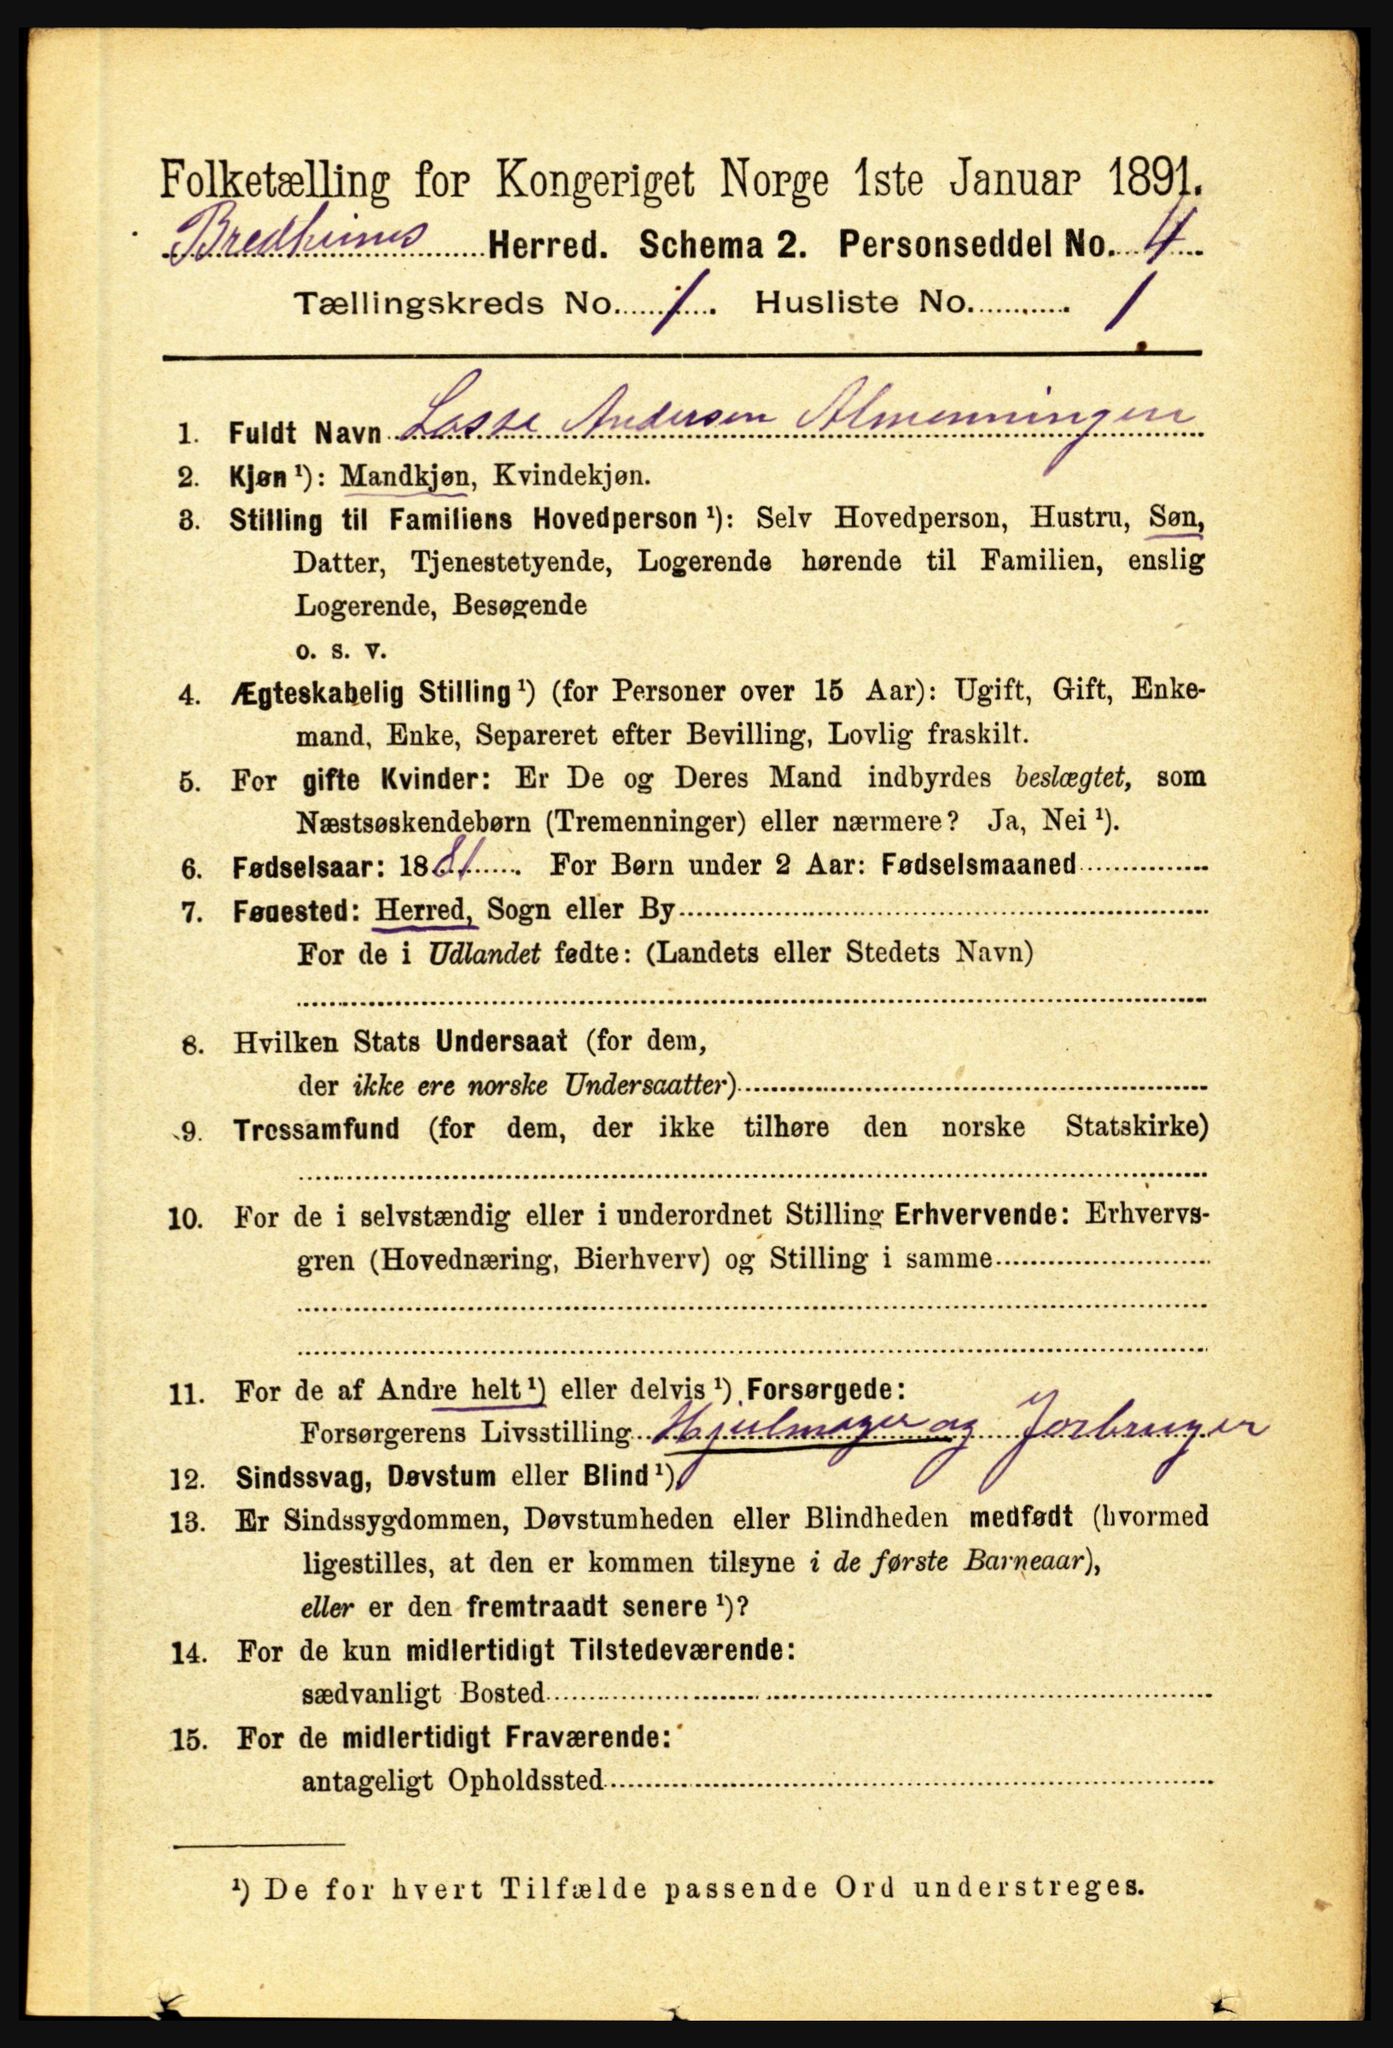 Folketælling for Kongeriget Norge 1ste Januar 1891.
Bredheims Herred. Schema 2. Personseddel No. 4
Tællingskreds No. 1. Husliste No. 1
1. Fuldt Navn Lasse Andersen Almenningen
2. Kjøn ¹): Mandkjøn, Kvindekjøn.
3. Stilling til Familiens Hovedperson ¹): Selv Hovedperson, Hustru, Søn,
Datter, Tjenestetyende, Logerende hørende til Familien, enslig
Logerende, Besøgende
o. s. v.
4. Ægteskabelig Stilling ¹) (for Personer over 15 Aar): Ugift, Gift, Enke-
mand, Enke, Separeret efter Bevilling, Lovlig fraskilt.
5. For gifte Kvinder: Er De og Deres Mand indbyrdes beslægtet, som
Næstsøskendebørn (Tremenninger) eller nærmere? Ja, Nei ¹).
6. Fødselsaar: 1881. For Børn under 2 Aar: Fødselsmaaned
7. Fødested: Herred, Sogn eller By
For de i Udlandet fødte: (Landets eller Stedets Navn)
8. Hvilken Stats Undersaat (for dem,
der ikke ere norske Undersaatter)
9. Trossamfund (for dem, der ikke tilhøre den norske Statskirke)
10. For de i selvstændig eller i underordnet Stilling Erhvervende: Erhvervs-
gren (Hovednæring, Bierhverv) og Stilling i samme
11. For de af Andre helt ¹) eller delvis ¹) Forsørgede:
Forsørgerens Livsstilling Hjulmager og Jorbruger
12. Sindssvag, Døvstum eller Blind ¹).
13. Er Sindssygdommen, Døvstumheden eller Blindheden medfødt (hvormed
ligestilles, at den er kommen tilsyne i de første Barneaar),
eller er den fremtraadt senere ¹)?
14. For de kun midlertidigt Tilstedeværende:
sædvanligt Bosted
15. For de midlertidigt Fraværende:
antageligt Opholdssted
¹) De for hvert Tilfælde passende Ord understreges.